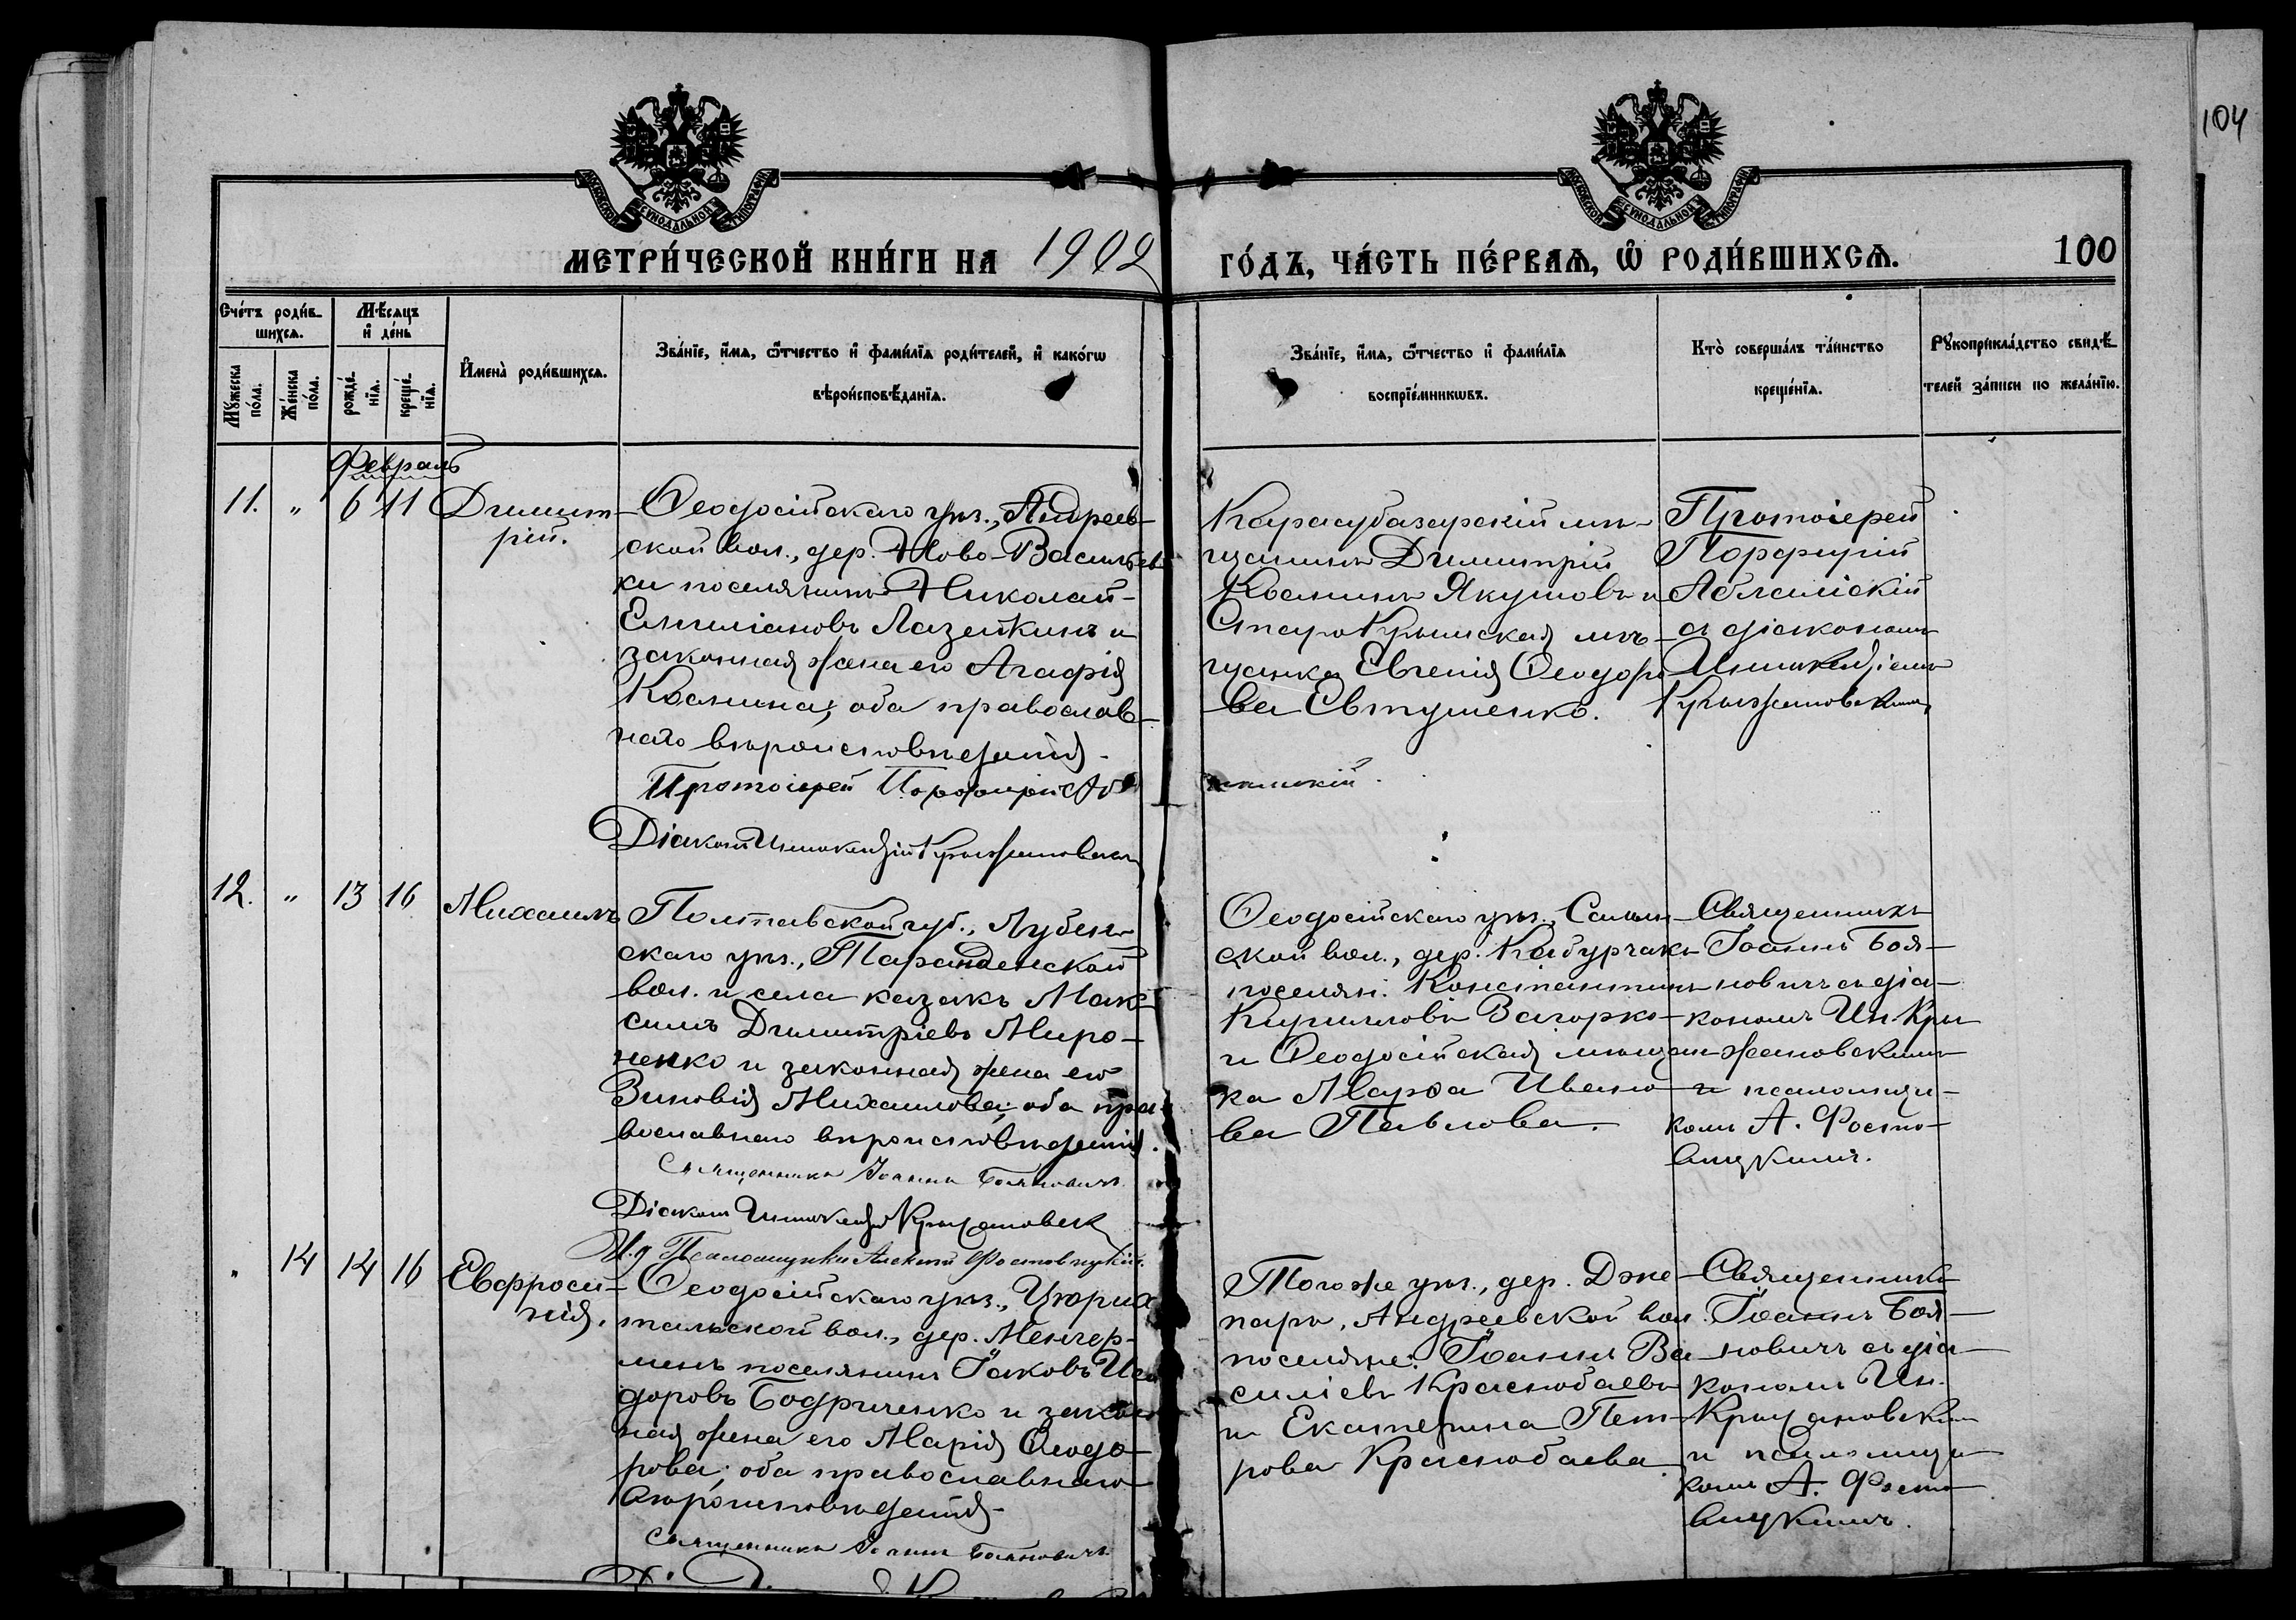 104
МОСКОВСКОЙ СУНОДАЛЬНОЙ ТИПОГРАФІИ
МОСКОВСКОЙ СУНОДАЛЬНОЙ ТИПОГРАФІИ
МЕТРИ́ЧЕСКОЙ КНИ́ГИ НА 1902 ГО́ДЪ, ЧА́СТЬ ПЕ́РВАѦ, Ѡ РОДИ́ВШИХСѦ. 100
Сче́тъ роди́в-
шихсѧ.
Мꙋ́жеска
по́ла.
Же́нска
по́ла.
Мѣ́сѧцъ
и де́нь
рожде́-
нїѧ.
креще́-
нїѧ.
Имена̀ роди́вшихсѧ.
Зва́нїе, и́мѧ, ѻ҆́тчество и фами́лїѧ роди́телей, и како́гѡ
вѣроисповѣ́данїѧ.
Зва́нїе, и́мѧ, ѻ҆́тчество и фами́лїѧ
воспрїе́мникѡвъ.
Кто̀ соверша́лъ та́инство
креще́нїѧ.
Рꙋкоприкла́дство свидѣ́-
телей за́писи по жела́нїю.
Февраль
11. „ 6 11
Димит-
рій.
Ѳеодосійскаго уѣз., Андреев-
ской вол., дер. Ново-Василье
ки поселянинъ Николай
Емиліановъ Лазейкинъ и
законная жена его Агафія
Космина; оба православ-
наго вѣроисповѣданія.
Протоіерей Порфирій Аб
Діаконъ Иннокентій Крыжановскій
Карасубазарскій мѣ-
щанинъ Димитрій
Косминъ Якушовъ и
СтароКрымская мѣ-
щанка Евгенія Ѳеодоро
ва Евтушенко.
Протоіерей
Порфирій
с діакономъ
Иннокентіемъ
Крыжановскимъ
12. „ 13 16
Михаилъ
Полтавской губ., Лубен-
скаго уѣз., Тарандинской
вол. и села казакъ Мак-
симъ Димитріевъ Миро-
ненко и законная жена его
Зиновія Михаилова; оба пра
вославнаго вѣроисповѣданія.
Священникъ Іоаннъ Бояновичъ
Діаконъ Иннокентій Крыжановск
И. д. Псаломщика Алексій
Ѳеодосійскаго уѣз.,
ской вол., дер. Кабурчакъ
поселян. Константинъ
Кирилловъ Загорко
и Ѳеодосійская мѣщан-
ка Марѳа Ивано-
ва Павлова.
Священникъ
Іоаннъ Боя-
новичъ съ діа-
кономъ Ин. Кры
жановскимъ
и псаломщи-
комъ А.
„ 14 14 16
Евфроси-
нія.
Ѳеодосійскаго уѣз., Цюрих
тальской вол., дер. Менгер-
менъ поселянинъ Іаковъ Иси
доровъ Бодриченко и закон
ная жена его Марія Ѳеодо-
рова; оба православнаго
вѣроисповѣданія.
Священникъ Іоаннъ Бояновичъ
Того же уѣз., дер. Дже-
паръ, Андреевской вол.
поселяне: Іоаннъ Ва
силіевъ Краснобаевъ
и Екатерина Пет-
рова Краснобаева.
Священникъ
Іоаннъ Боя-
новичъ съ діа-
кономъ Ин.
Крыжановским
и псаломщи
комъ А.